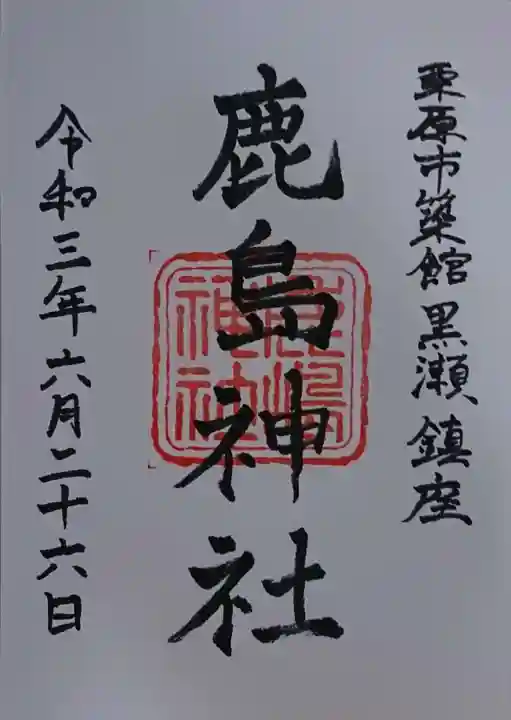 栗原市築館黒瀬鎮座
鹿島神社
鹿嶋神社
令和三年六月二十六日